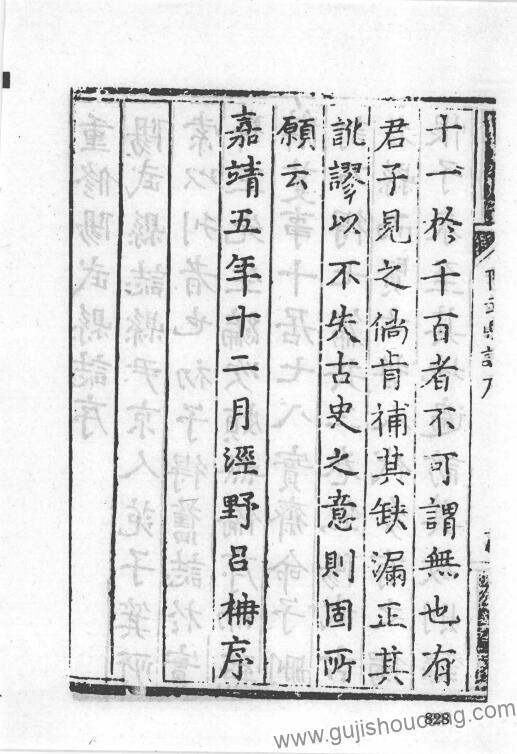 十一扵千百者不可謂無也有
君子見之倘肯補其缺漏正其
訛謬以不失古史之意則固所
願云
嘉靖五年十二月涇野呂柟序
828
www.gujishoucang.com